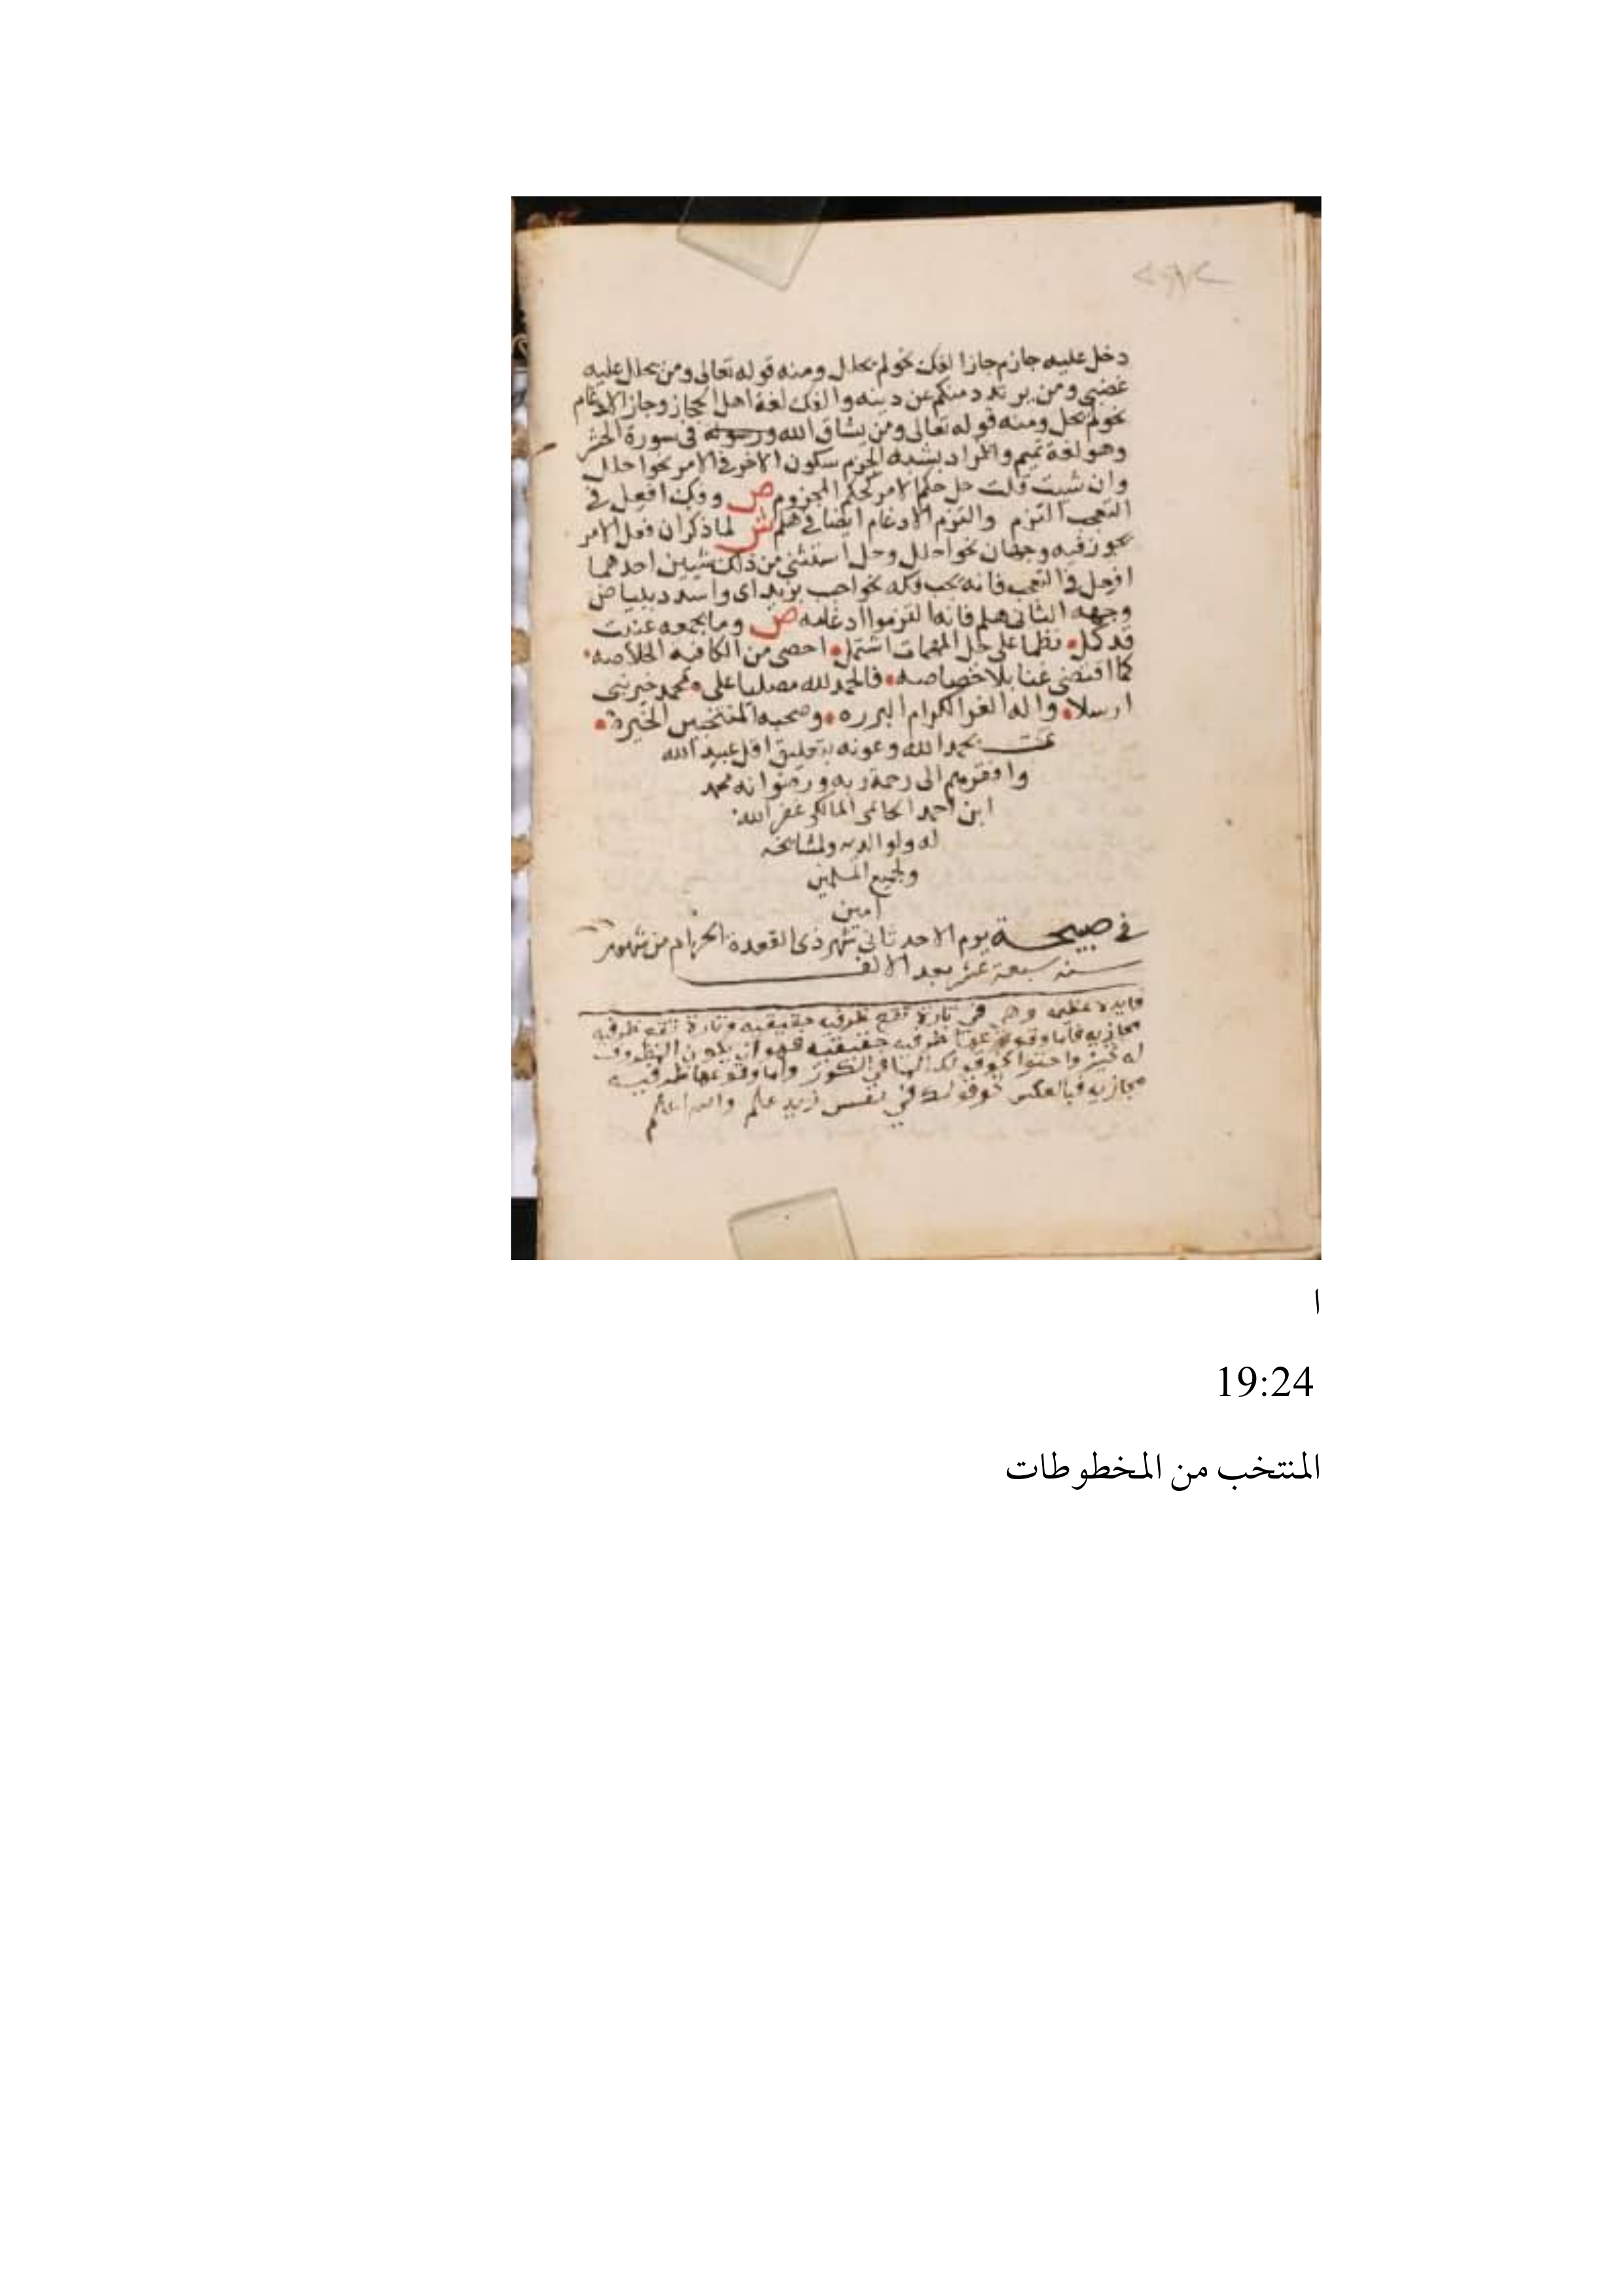 دخل عليه جازم جاز الفك نحو لم يحلل ومنه قوله تعالى ومن يحلل عليه
غضبي ومن يرتدد منكم عن دينه والفك لغة اهل الحجاز وجاز الادغام
نحو لم يحل ومنه قوله تعالى ومن يشاق الله ورسوله في سورة الحشر
وهو لغة تميم والمراد بشبه الجزم سكون الاخر في الامر نحو احلل
وان شيت قلت حل حكم الامر كحكم المجزوم ص وفك افعل في
التعجب التزم والتزم الادغام ايضا في هلم ش لما ذكر ان فعل الامر
يجوز فيه وجهان نحو احلل وحل استثني من ذلك شيين احدهما
افعل في التعجب فانه يجب فكه نحو احبب بزيد اى واشدد ببياض
وجهه الثانى هلم فانه التزموا ادغامه ص وما بجمعه عنيت
قد كمل نظما على جل المهمات اشتمل احصى من الكافيه الخلاصه
كما اقتضى غنا بلا خصاصه فالحمد لله مصليا على محمد خير نبي
ارسلا واله الغر الكرام البرره وصحبه المنتخبين الخيرة
تمت بحمد الله وعونه بتعليق اقل عبيد الله
وافقرهم الى رحمة ربه ورضوانه محمد
ابن احمد المالكى غفر الله
له ولوالديه ولمشايخه
ولجميع المسلمين
امين
في صبيحة يوم الاحد ثانى شهر ذى القعدة الحرام من شهور
سنه سبعة عشر بعد الالف
فايدة عظيمه وهي في تارة تقع ظرفيه حقيقيه وتارة تقع ظرفيه
مجازيه فاما وقوعها ظرفيه حقيقيه فهو ان يكون المظروف
له تحيز واحتوا نحو قولك الما في الكوز واما وقوعها ظرفيه
مجازيه فبالعكس نحو قولك في نفس زيد علم والله اعلم
ا
19:24
المنتخب من المخطوطات